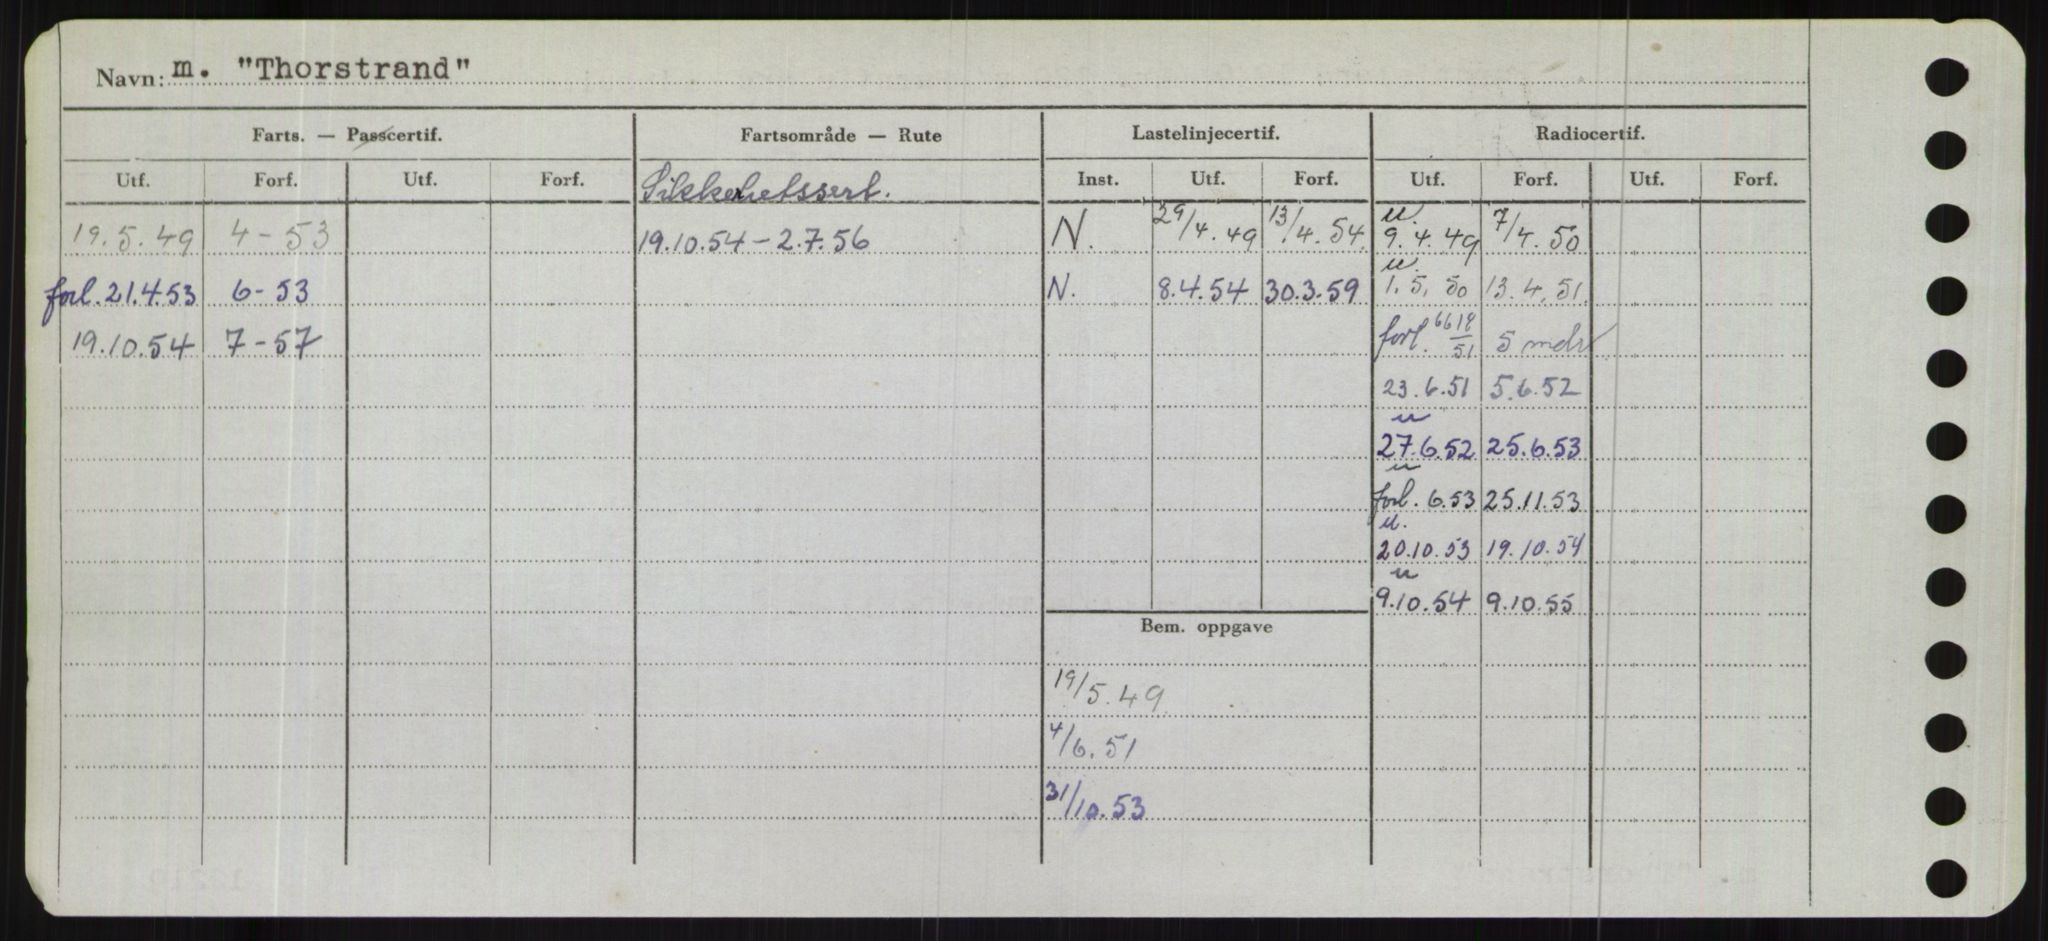 Navn: m. "Thorstrand"
Farts. — Passcertif. Fartsområde — Rute Lastelinjecertif. Radiocertif.
Utf. Forf. Utf. Forf. Sikkerhetssert. Inst. Utf. Forf. Utf. Forf. Utf. Forf.
19.5.49 4-53 19.10.54-2.7.56 N. 29/4.49 13/4.54 u. 9.4.49 7/4.50
forl.21.4.53 6-53 N. 8.4.54 30.3.59 u. 1.5.50 13.4.51
19.10.54 7-57 forl. 6618/51 5 mdr
23.6.51 5.6.52
u
27.6.52 25.6.53
u
forl. 6.53 25.11.53
u.
20.10.53 19.10.54
u
9.10.54 9.10.55
Bem. oppgave
19/5.49
4/6.51
31/10.53